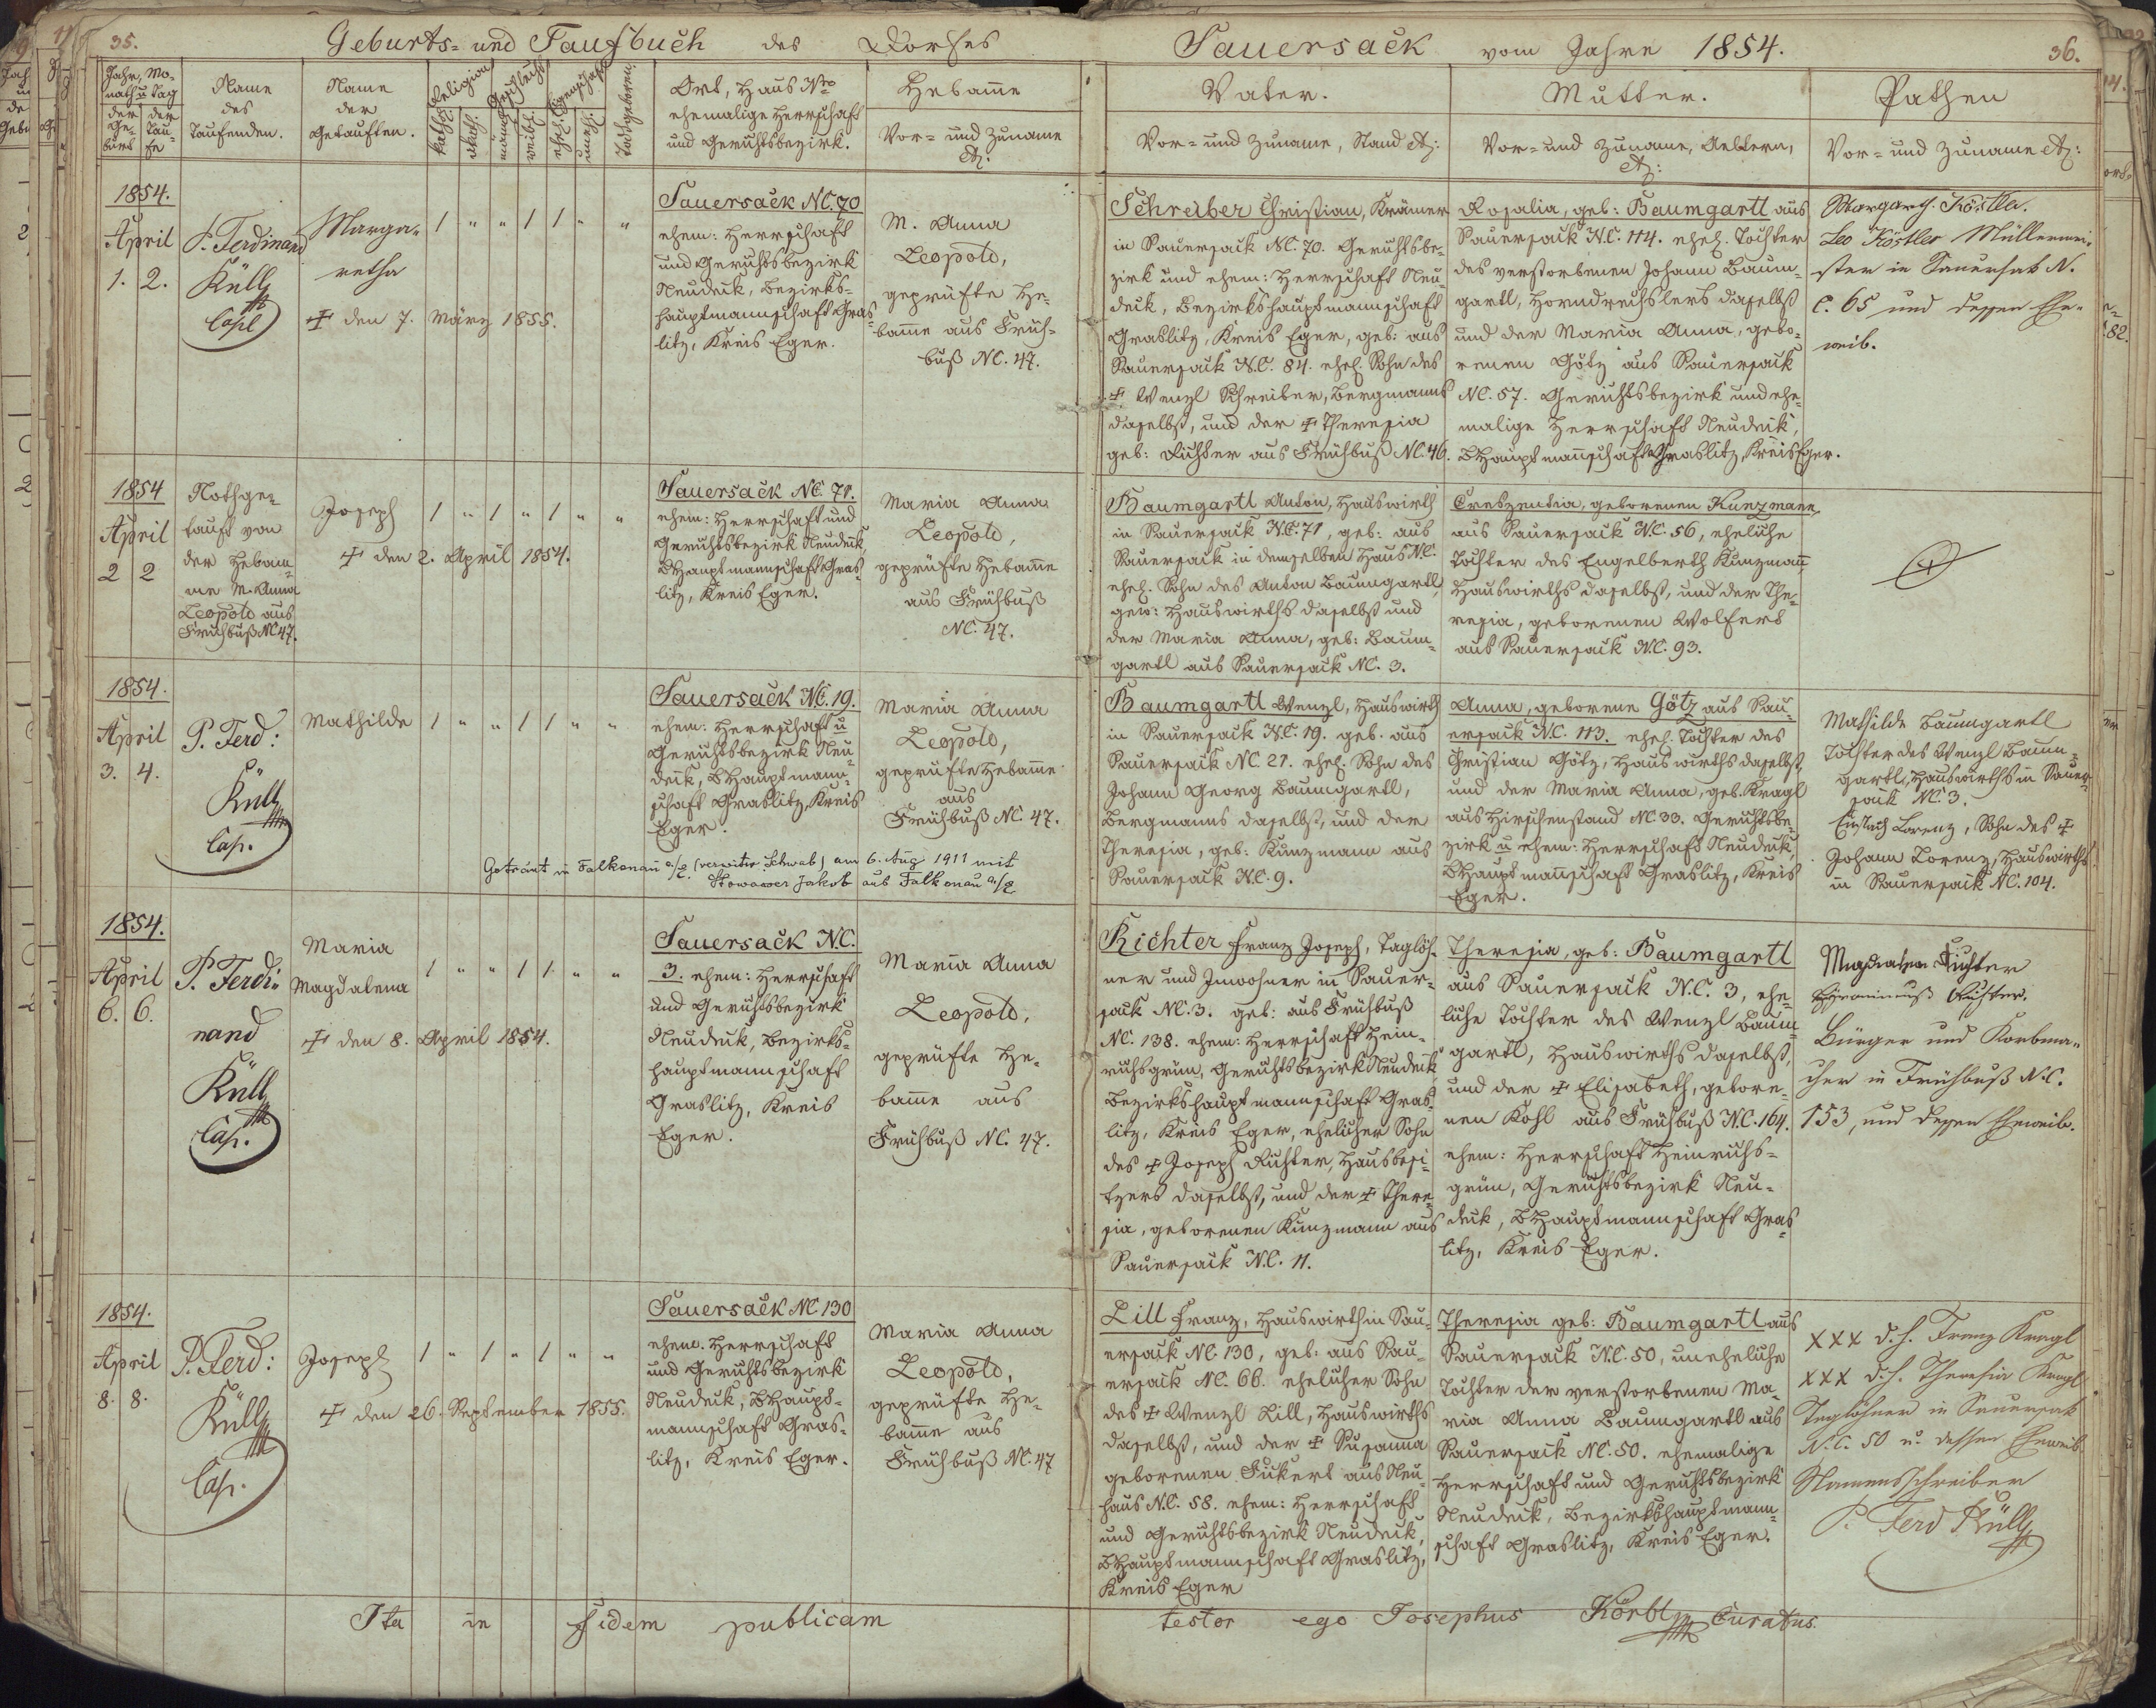 35.
Geburts- und Taufbuch des Dorfes
Sauersack vom Jahre 1854.
36.
Jahr, Mo-
nath u Tag
der Ge-
burt
der Tau-
fe
Name
des
Taufenden.
Name
der
Getauften.
Religion
kathol.
akath.
Geschlecht
männl.
weibl.
Eigenschaft
ehel.
unehl.
Todtgeboren.
Ort, Haus Nro
ehemalige Herrschaft
und Gerichtsbezirk.
Hebame
Vor- und Zuname
etz:
Vater.
Vor- und Zuname, Stand etz:
Mutter.
Vor- und Zuname, Aeltern,
etz:
Pathen
Vor- und Zuname etz:
1854.
April
1. 2.
P. Ferdinand
Küll
Capl
Marga-
retha
✝ den 7. März 1855.
1 " " 1 1 " "
Sauersack NC. 70
ehem: Herrschaft
und Gerichtsbezirk
Neudeck, Bezirks-
hauptmannschaft Gras-
litz, Kreis Eger.
M. Anna
Leopold,
geprüfte He-
bame aus Früh-
buß NC. 47.
Schreiber Christian, Krämer
in Sauersack NC. 70. Gerichtsbe-
zirk und ehem: Herrschaft Neu-
deck, Bezirkshauptmannschaft
Graslitz, Kreis Eger, geb: aus
Sauersack N.C. 84. ehel. Sohn des
✝ Wenzl Schreiber, Bergmanns
daselbst, und der ✝ Theresia
geb: Richter aus Frühbuß NC. 46.
Rosalia, geb: Baumgartl aus
Sauersack N.C. 114. ehel. Tochter
des verstorbenen Johann Baum-
gartl, Horndrechslers daselbst
und der Maria Anna, gebo-
renen Götz aus Sauersack
NC. 57. Gerichtsbezirk und ehe-
malige Herrschaft Neudeck,
BHauptmannschaft Graslitz, Kreis Eger.
Margareth. Köstler.
Leo Köstler Müllermei-
ster in Sauersak N.
C. 65 und dessen Ehe-
weib.
1854
April
2 2
Nothge-
tauft von
der Hebam-
me M. Anna
Leopold aus
Frühbuß NC 47.
Joseph
✝ den 2. April 1854.
1 " 1 " 1 " "
Sauersack NC. 71.
ehem: Herrschaft und
Gerichtsbezirk Neudeck,
BHauptmannschaft Gras-
litz, Kreis Eger.
Maria Anna
Leopold,
geprüfte Hebame
aus Frühbuß
NC. 47.
Baumgartl Anton, Hauswirth
in Sauersack N.C. 71, geb: aus
Sauersack in demselben Haus N.C.
ehel. Sohn des Anton Baumgartl,
gew: Hauswirths daselbst und
der Maria Anna, geb: Baum-
gartl aus Sauersack NC. 3.
Creszentia, geborenen Kunzmann,
aus Sauersack N.C. 56, eheliche
Tochter des Engelberth Kunzmann
Hauswirths daselbst, und der The-
resia, geborenen Wolfert
aus Sauersack N.C. 93.
1854.
April
3. 4.
P. Ferd:
Küll
Cap.
Mathilde
1 " " 1 1 " "
Sauersack NC. 19.
ehem: Herrschaft u
Gerichtsbezirk Neu-
deck, BHauptmann-
schaft Graslitz, Kreis
Eger.
Maria Anna
Leopold,
geprüfte Hebame
aus
Frühbuß NC. 47.
Getraut in Falkenau a/E. (verwitw. Schwab) am 6. Aug 1911 mit
Stowasser Jakob aus Falkenau a/E
Baumgartl Wenzl, Hauswirth
in Sauersack N.C. 19. geb. aus
Sauersack NC. 21. ehel. Sohn des
Johann Georg Baumgartl,
Bergmanns daselbst, und der
Theresia, geb: Kunzmann aus
Sauersack N.C. 9.
Anna, geborene Götz aus Sau-
ersack N.C. 113. ehel. Tochter des
Christian Götz, Hauswirths daselbst,
und der Maria Anna, geb. Kragl
aus Hirschenstand NC. 33. Gerichtsbe-
zirk u ehem: Herrschaft Neudeck,
BHauptmannschaft Graslitz, Kreis
Eger.
Mathilde Baumgartl
Tochter des Wenzl Baum-
gartl, Hauswirths in Sauer-
sack NC. 3.
Eustach Lorenz, Sohn des ✝
Johann Lorenz, Hauswirths
in Sauersack NC. 104.
1854.
April
6. 6.
P. Ferdi-
nand
Küll
Cap.
Maria
Magdalena
✝ den 8. April 1854.
1 " " 1 1 " "
Sauersack N.C.
3. ehem: Herrschaft
und Gerichtsbezirk
Neudeck, Bezirks-
hauptmannschaft
Graslitz, Kreis
Eger.
Maria Anna
Leopold,
geprüfte He-
bame aus
Frühbuß NC. 47.
Richter Franz Joseph, Taglöh-
ner und Inwohner in Sauer-
sack NC. 3. geb: aus Frühbuß
NC. 138. ehem: Herrschaft Hein-
richsgrün, Gerichtsbezirk Neudeck,
Bezirkshauptmannschaft Gras-
litz, Kreis Eger, ehelicher Sohn
des ✝ Joseph Richter, Hausbesi-
tzers daselbst, und der ✝ There-
sia, geborenen Kunzmann aus
Sauersack N.C. 11.
Theresia, geb: Baumgartl
aus Sauersack N.C. 3, ehe-
liche Tochter des Wenzl Baum-
gartl, Hauswirths daselbst,
und der ✝ Elisabeth, gebore-
nen Kohl aus Frühbuß N.C. 164.
ehem: Herrschaft Heinrichs-
grün, Gerichtsbezirk Neu-
deck, BHauptmannschaft Gras-
litz, Kreis Eger.
Magdalena Richter
Hieronimuß Richter.
Bürger und Korbma-
cher in Frühbuß N.C.
153, und dessen Eheweib.
1854.
April
8. 8.
P. Ferd:
Küll
Cap.
Joseph
✝ den 26. September 1855.
1 " 1 " 1 " "
Sauersack NC. 130
ehem. Herrschaft
und Gerichtsbezirk
Neudeck, BHaupt-
mannschaft Gras-
litz, Kreis Eger.
Maria Anna
Leopold,
geprüfte He-
bame aus
Frühbuß NC. 47
Lill Franz, Hauswirth in Sau-
ersack NC. 130, geb: aus Sau-
ersack NC. 66. ehelicher Sohn
des ✝ Wenzl Lill, Hauswirths
daselbst, und der ✝ Susanna
geborenen Fükert aus Neu-
haus N.C. 58. ehem: Herrschaft
und Gerichtsbezirk Neudeck,
BHauptmannschaft Graslitz,
Kreis Eger
Theresia geb: Baumgartl aus
Sauersack N.C. 50, uneheliche
Tochter der verstorbenen Ma-
ria Anna Baumgartl aus
Sauersack NC. 50. ehemalige
Herrschaft und Gerichtsbezirk
Neudeck, Bezirkshauptmann-
schaft Graslitz, Kreis Eger.
XXX d.h. Franz Kragl
XXX d.h. Theresia Kragl
Taglöhner in Sauersak
N.C. 50 u. dessen Eheweib
Namensschreiber
P. Ferd Küll
Ita in fidem publicam
testor ego Josephus Körbl Curatus.